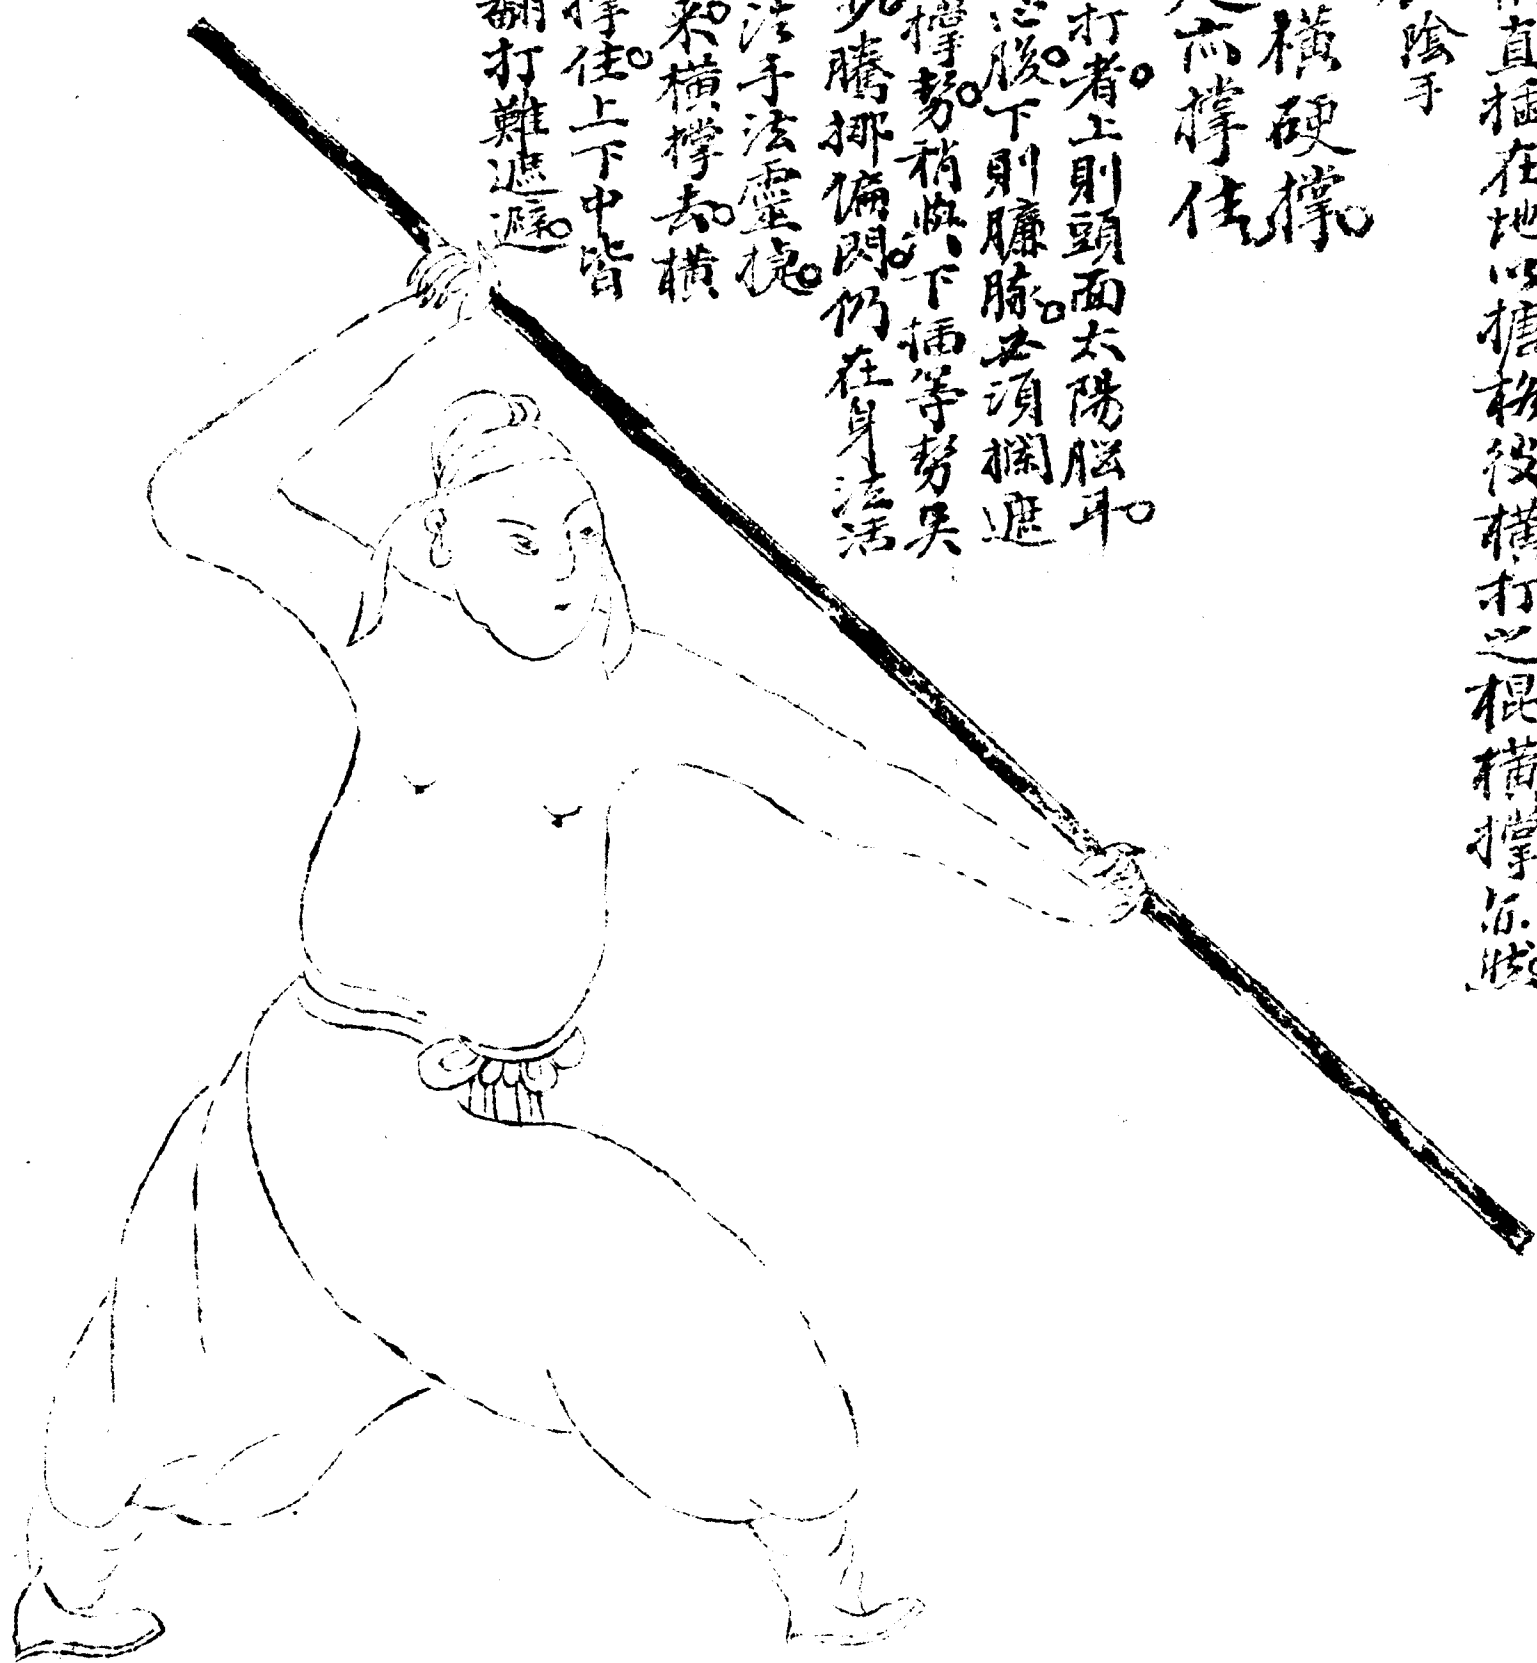 直插在地以搪格彼橫打之棍橫撑亦
陰手
橫硬撑
亦撑住
打者上則頭面太陽腦耳
腹下則臁脉必須攔遮
撑勢稍與下插等勢異
騰挪偏閃仍在身法活
法手法靈捷
來橫撑去橫
撑住上下中皆
翻打難遮避